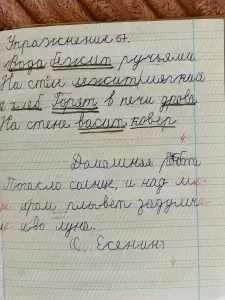 Упражнение 67.
Вода бежит ручьями
На стол лежит мягкий
хлеб. Горят в печи дрова
На стене васит ковер.
4
Домашняя работа
Погасло солнце, и над ми-
ром плывёт задумчи-
во луна.
(С. Есенин)
4